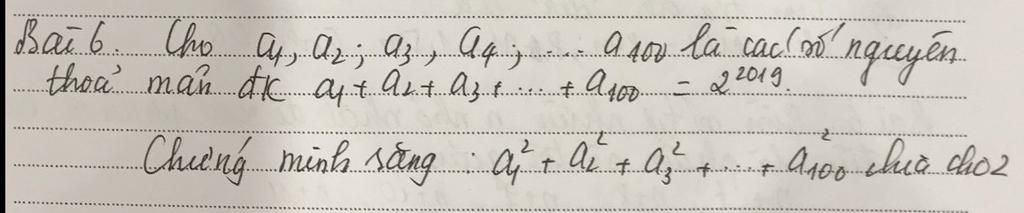 Bài 6. Cho a₁, a₂; a₃, a₄; ... a₁₀₀ là các số nguyên
thoả mãn đk a₁ + a₂ + a₃ + ... + a₁₀₀ = 2²⁰¹⁹.
Chứng minh rằng : a₁² + a₂² + a₃² + ... + a₁₀₀² chia cho 2